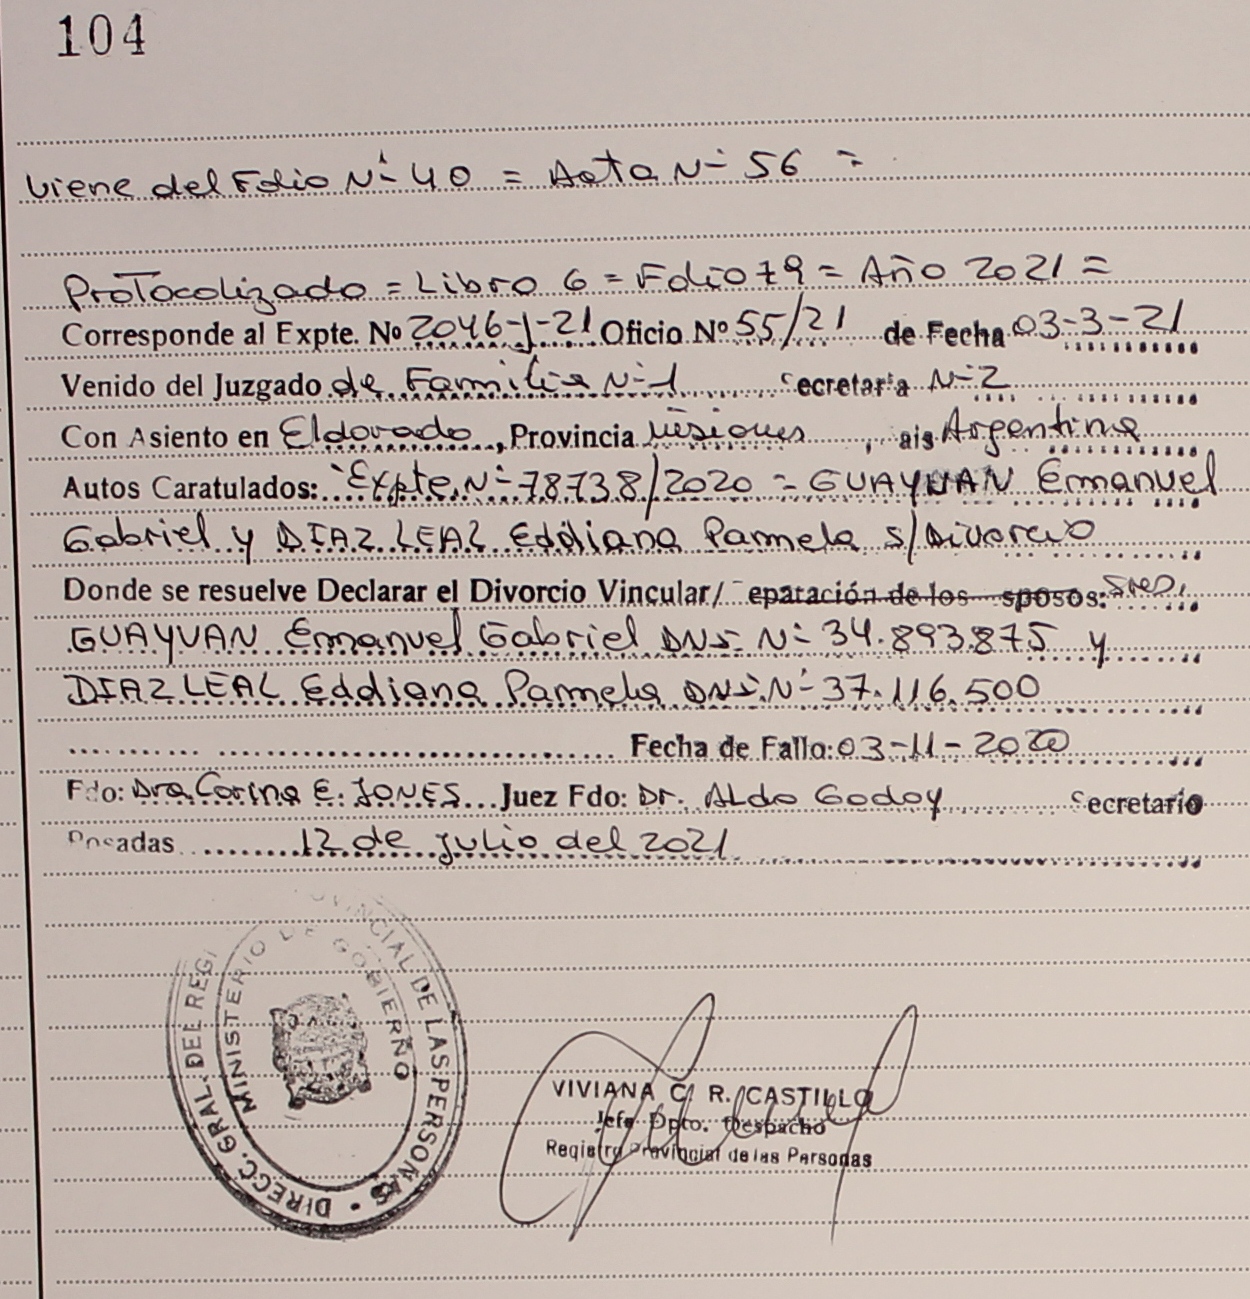 104
viene del Folio Nº 40 = Acta Nº 56 =
Protocolizado = Libro 6 = Folio 79 = Año 2021 =
Corresponde al Expte. Nº 2046-J-21 Oficio Nº 55/21 de Fecha 03-3-21
Venido del Juzgado de Familia Nº 1 Secretaria Nº 2
Con Asiento en Eldorado, Provincia Misiones, ais Argentina
Autos Caratulados: "Expte. Nº 78738/2020 = GUAYUAN Emanuel
Gabriel y DIAZ LEAL Eddiana Pamela s/Divorcio
Donde se resuelve Declarar el Divorcio Vincular/ eparación de los sposos: Sres.
GUAYUAN Emanuel Gabriel DNI. Nº 34.893.875 y
DIAZ LEAL Eddiana Pamela DNI. Nº 37.116.500
Fecha de Fallo: 03-11-2020
Fdo: Dra Corina E. JONES Juez Fdo: Dr. Aldo Godoy Secretario
Posadas 12 de julio del 2021
DIRECC. GRAL. DEL REGI OVINCIAL DE LAS PERSONAS
MINISTERIO DE GOBIERNO
VIVIANA C. R. CASTILLO
Jefe Dpto. Despacho
Registro Provincial de las Personas